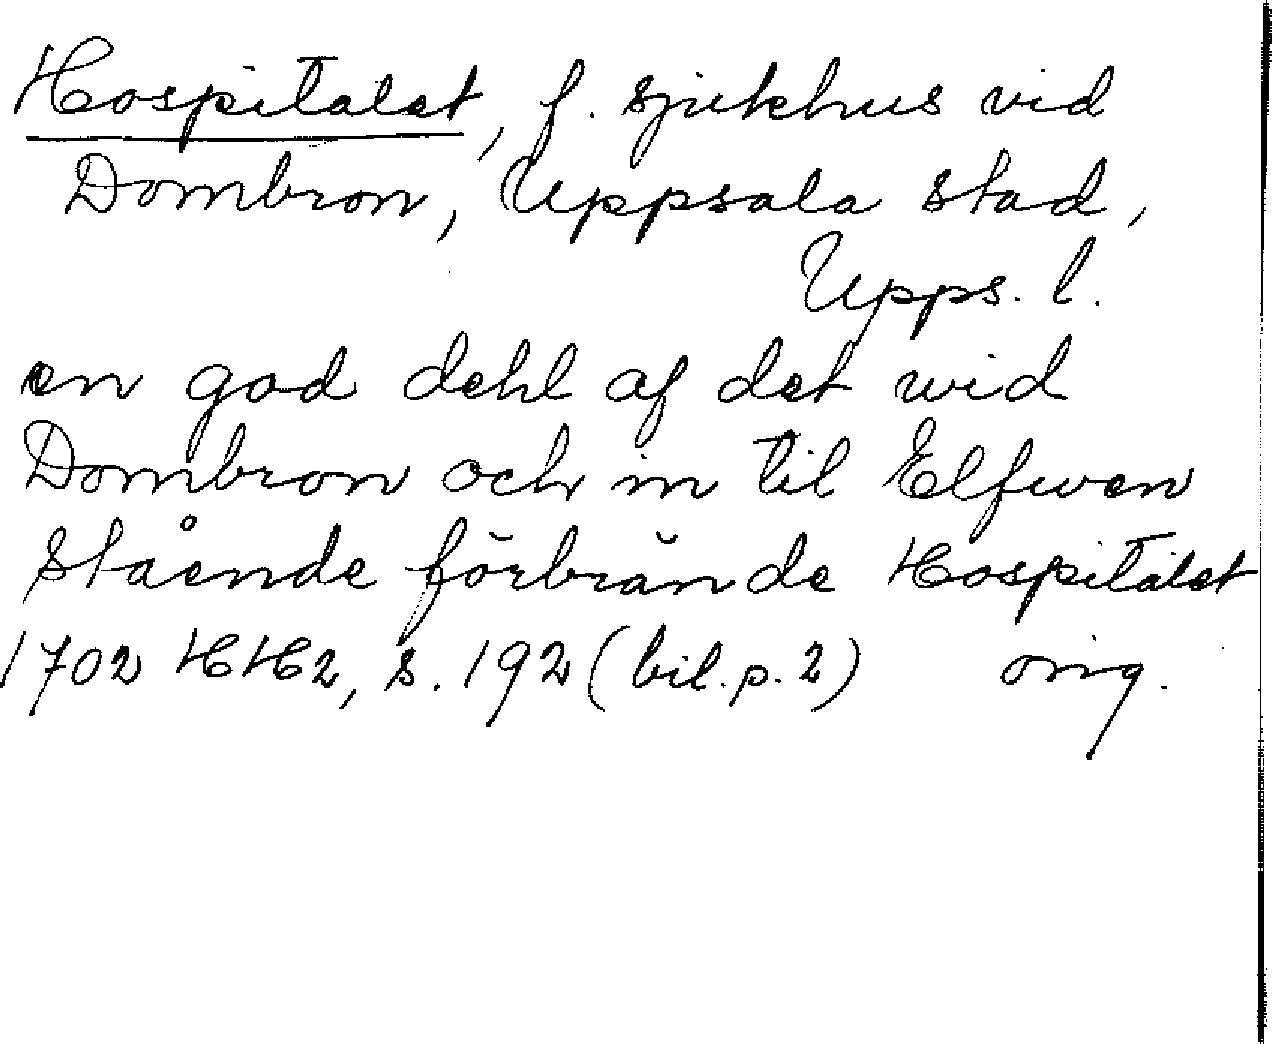 Hospitalet, f. sjukhus vid
Dombron, Uppsala stad,
Upps. l.
en god dehl af det wid
Dombron och in til Elfwen
stående förbrände Hospitalet
1702 HH2, s. 192 (bil. p. 2) orig.